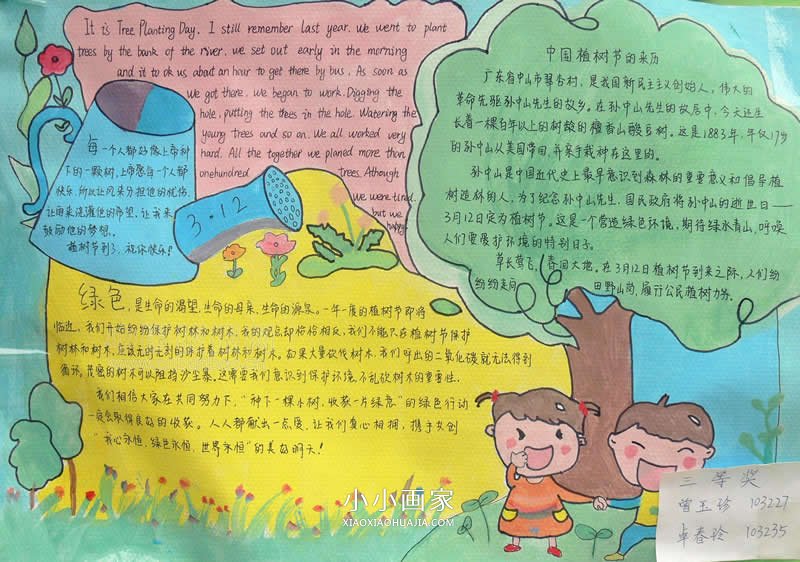 It is Tree Planting Day. I still remember last year. we went to plant
trees by the bank of the river. we set out early in the morning
and it to ok us about an hour to get there by bus. As soon as
we got there. we began to work. Digging the
hole, putting the trees in the hole. Watering the
young trees and so on. We all worked very
hard. All the together we planed more than
onehundred trees. Athough
we were tired.
but we
happy.
中国植树节的来历
广东省中山市翠亨村，是我国新民主主义创始人，伟大的
革命先驱孙中山先生的故乡。在孙中山先生的故居中，今天还生
长着一棵百年以上的树龄的檀香山酸豆树。这是1883年，年仅17岁
的孙中山从美国带回，并亲手栽种在这里的。
孙中山是中国近代史上最早意识到森林的重要意义和倡导植
树造林的人，为了纪念孙中山先生，国民政府将孙中山的逝世日——
3月12日定为植树节。这是一个营造绿色环境，期待绿水青山，呼唤
人们要爱护环境的特别日子。
草长莺飞，春回大地。在3月12日植树节到来之际，人们纷
纷纷走向 田野山岗，履行公民植树力务。
每一个人都好像上帝树
下的一颗树，上帝愿每一个人都
快乐，所以让风来分担他的忧伤，
让雨来浇灌他的希望，让我来
鼓励他的梦想。
植树节到了，祝你快乐！
3·12
绿色，是生命的渴望，生命的母亲，生命的源泉。一年一度的植树节即将
临近，我们开始纷纷保护树林和树木，我的观点却恰恰相反，我们不能只在植树节保护
树林和树木，应该无时无刻的保护着树林和树木。如果大量砍伐树木，我们呼出的二氧化碳就无法得到
循环。茂密的树木可以阻挡沙尘暴，这需要我们意识到保护环境、不乱砍树木的重要性。
我们相信大家在共同努力下，“种下一棵小树，收获一片绿意”的绿色行动
一定会取得良好的收获。人人都献出一点爱，让我们真心相拥，携手共创
“我心永恒，绿色永恒，世界永恒”的美好明天！
三等奖
曾玉珍 103227
卓春玲 103235
小小画家
XIAOXIAOHUAJIA.COM